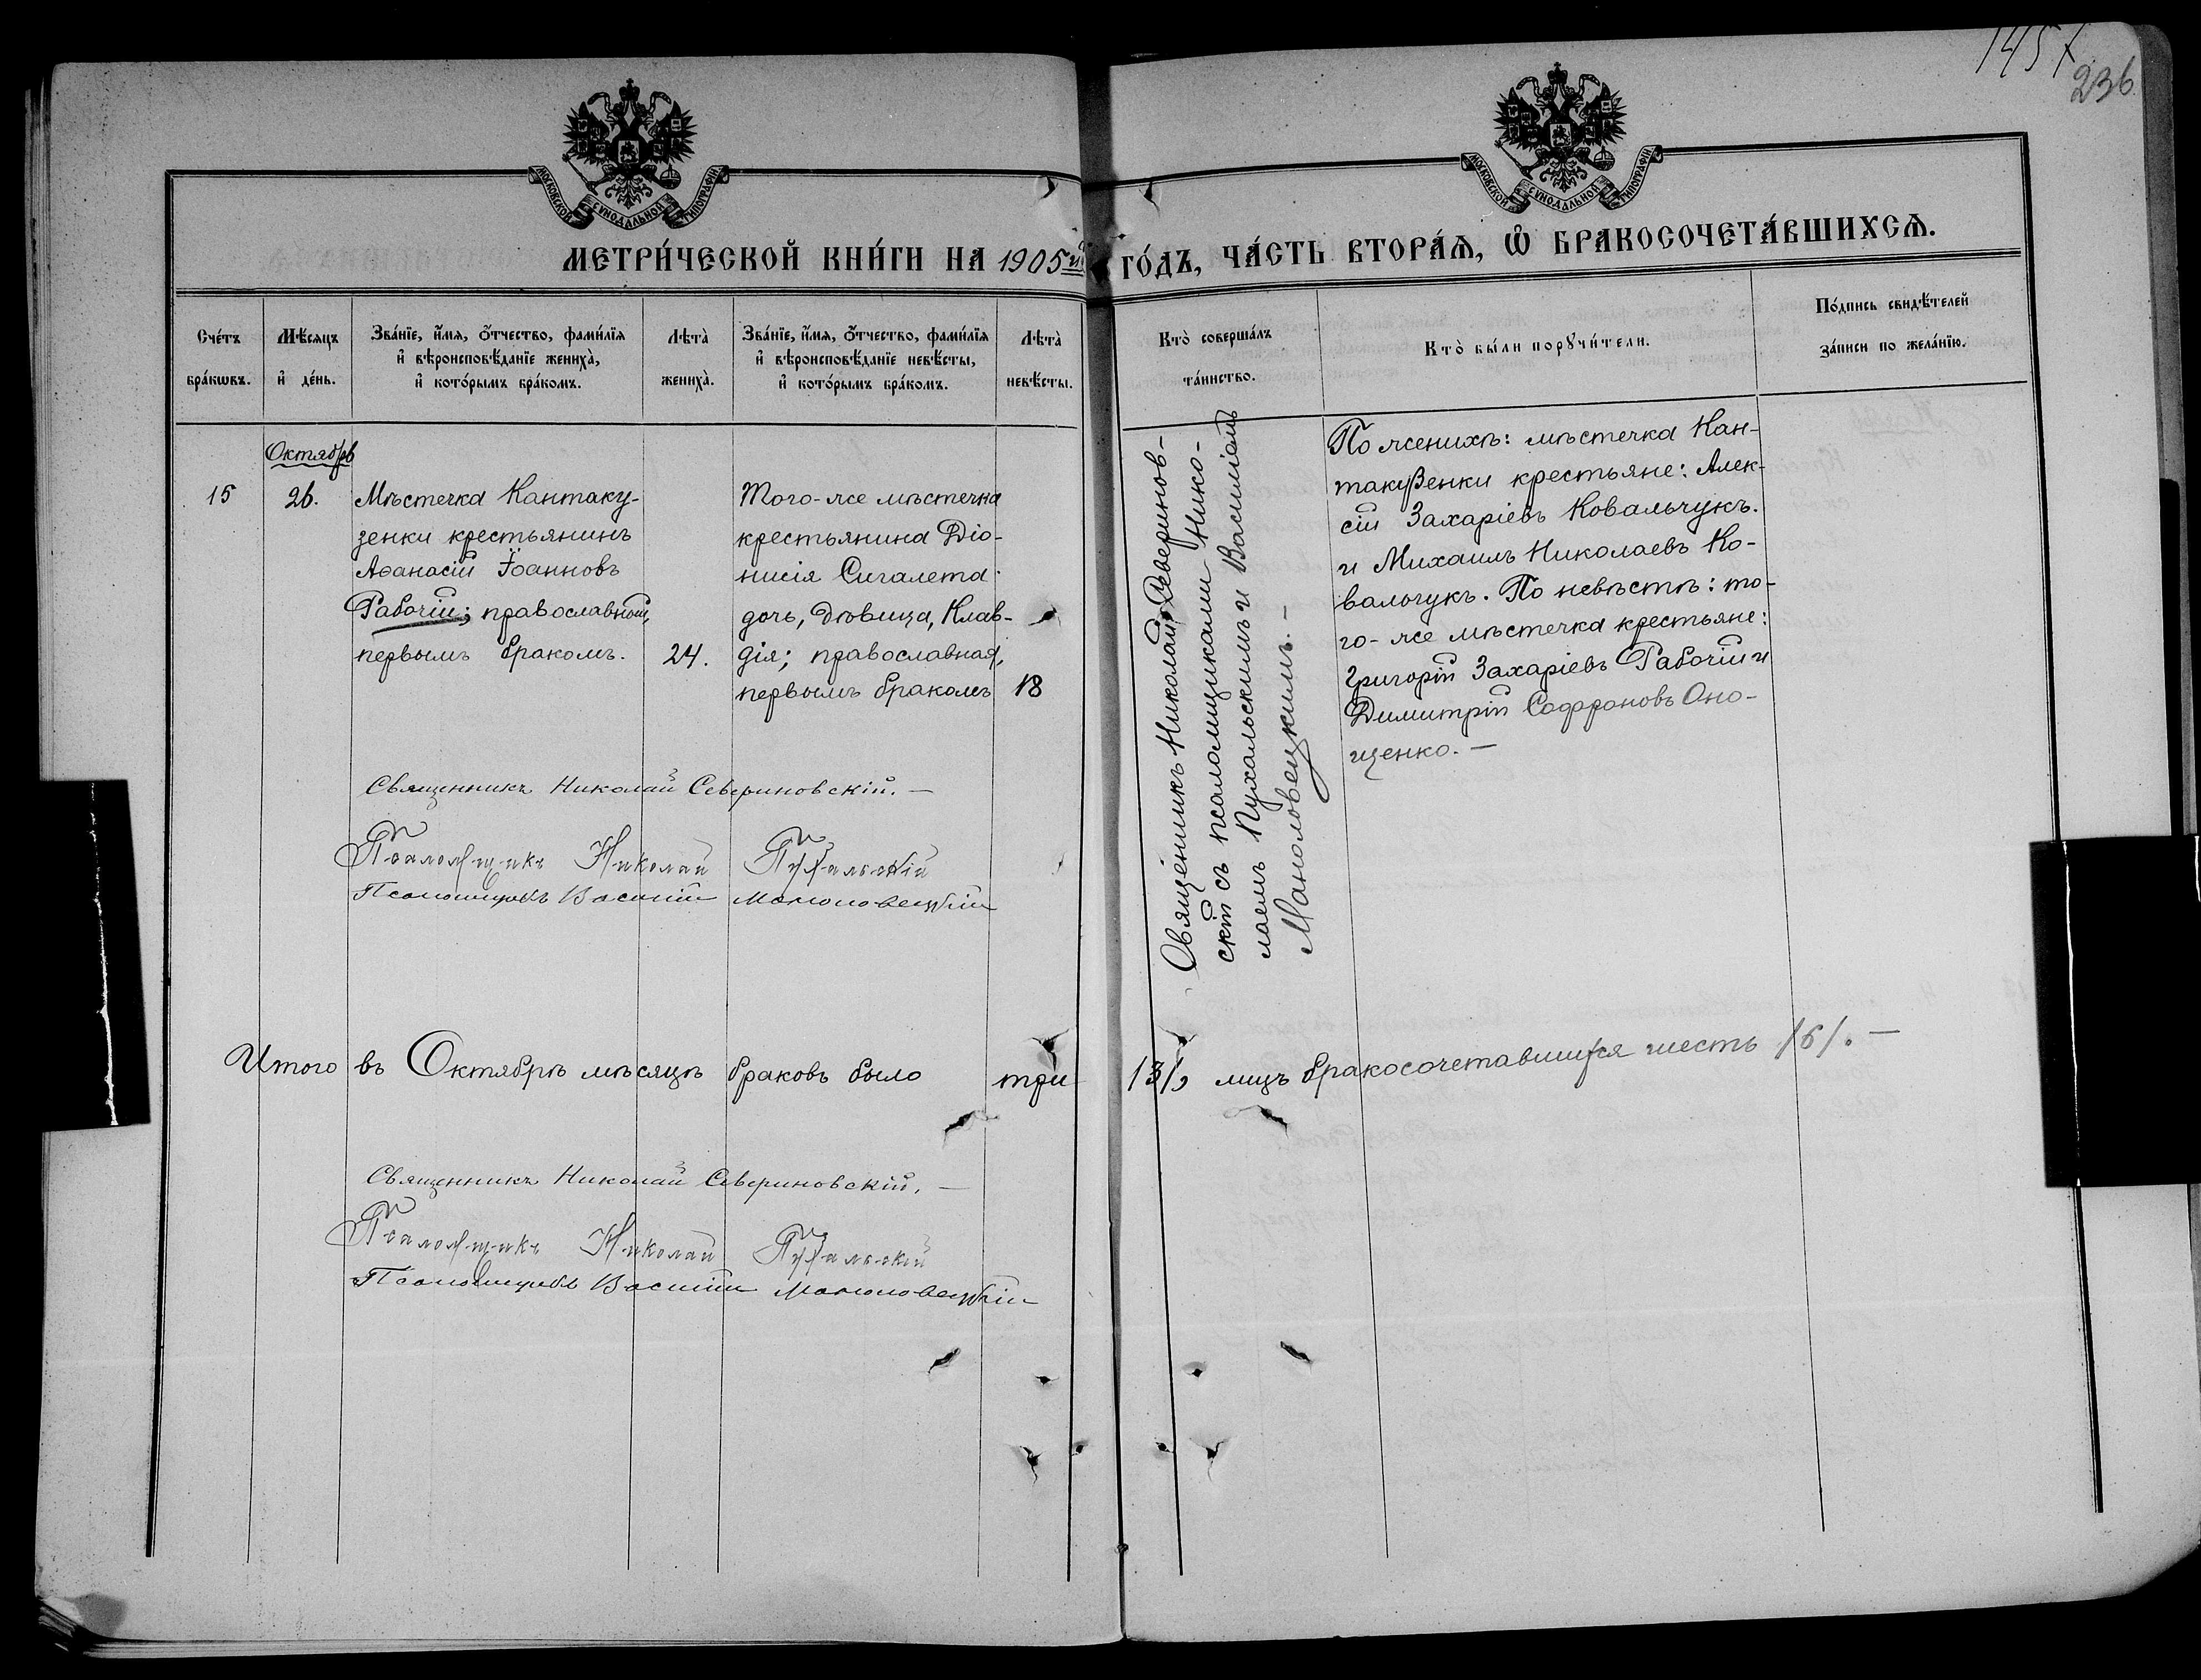 1457
236
МОСКОВСКОЙ СѴНОДАЛЬНОЙ ТИПОГРАФІИ
МОСКОВСКОЙ СѴНОДАЛЬНОЙ ТИПОГРАФІИ
МЕТРИ́ЧЕСКОЙ КНИ́ГИ НА 1905й ГО́ДЪ, ЧА́СТЬ ВТОРА́Ѧ, Ѡ҆ БРАКОСОЧЕТА́ВШИХСѦ.
Сче́тъ
бра́кѡвъ.
Мѣ́сяцъ
и҆ де́нь.
Зва́нїе, и҆́мя, ѻ҆́тчество, фами́лїя
и҆ вѣроисповѣ́данїе жениха̀,
и҆ кото́рымъ бра́комъ.
Лѣта̀
жениха̀.
Зва́нїе, и҆́мя, ѻ҆́тчество, фами́лїя
и҆ вѣроисповѣ́данїе невѣ́сты,
и҆ кото́рымъ бра́комъ.
Лѣта̀
невѣ́сты.
Кто̀ соверша́лъ
та́инство.
Кто̀ бы́ли порꙋчи́тели.
По́дпись свидѣ́телей
за́писи по жела́нїю.
Октябрь
15
26.
Мѣстечка Кантаку-
зенки крестьянинъ
Аѳанасій Іоанновъ
Рабочій; православный,
первымъ бракомъ.
24.
Того-же мѣстечка
крестьянина Діо-
нисія Сигалета
дочь, дѣвица, Клав-
дія; православная,
первымъ бракомъ
18
Священникъ Николай Севериновскій
скій съ псаломщиками Нико-
лаемъ Пухальскимъ и Василіемъ
Маноловецкимъ. —
По женихѣ: мѣстечка Кан-
такузенки крестьяне: Алек-
сій Захаріевъ Ковальчукъ.
и Михаилъ Николаевъ Ко-
вальчукъ. По невѣстѣ: то-
го-же мѣстечка крестьяне:
Григорій Захаріевъ Рабочій и
Димитрій Софроновъ Оно-
щенко. —
Священникъ Николай Севериновскій. —
Псаломщикъ Николай Пухальскій
Псаломщикъ Василій Маноловецкій
Итого въ Октябрѣ мѣсяцѣ браковъ было три /3/, лицъ бракосочетавшихся шесть /6/. —
Священникъ Николай Севериновскій. —
Псаломщикъ Николай Пухальскій
Псаломщикъ Василій Маноловецкій